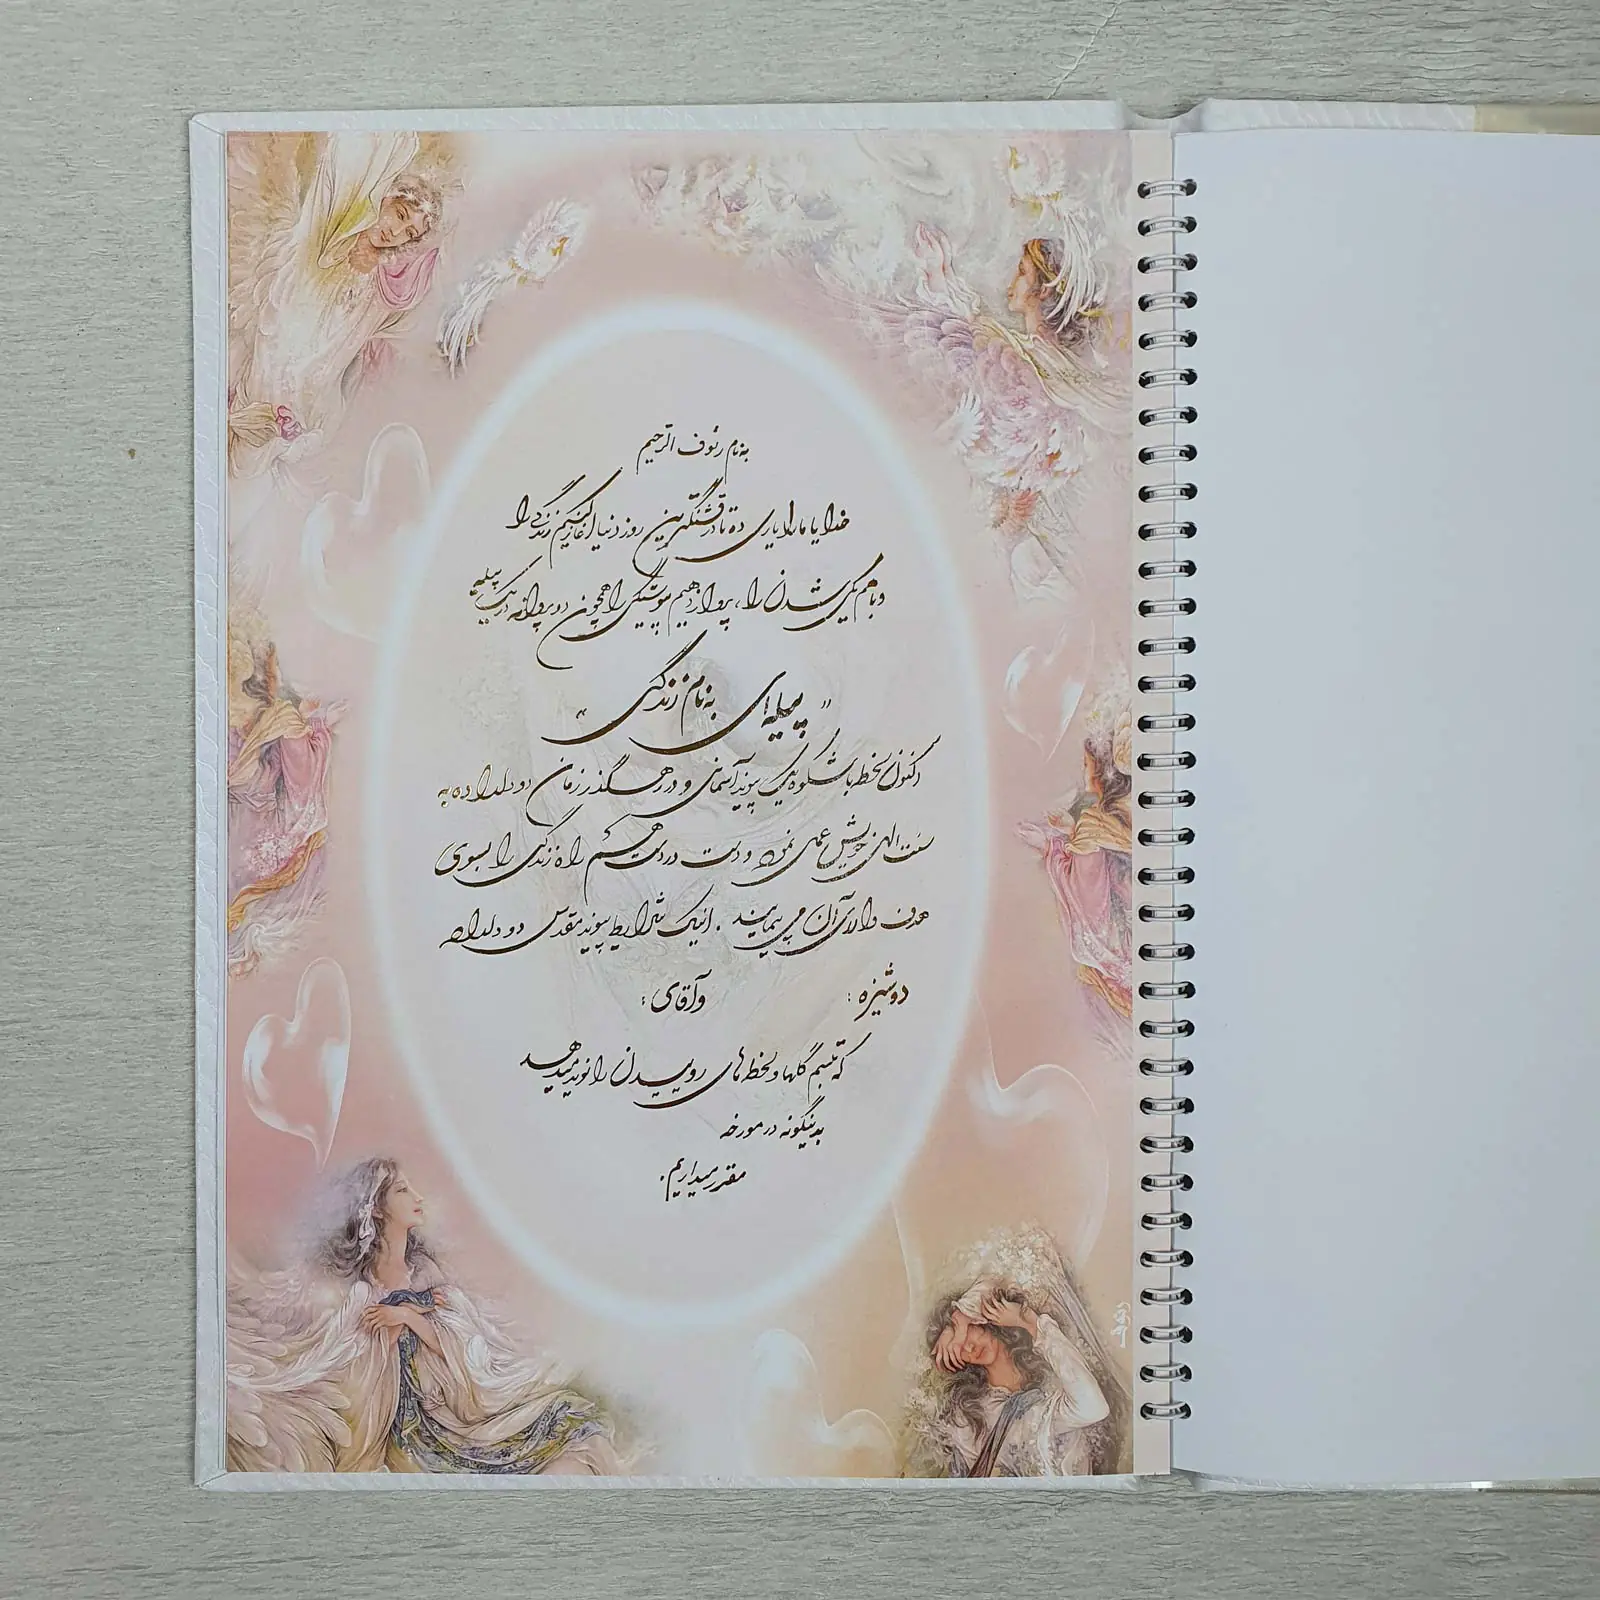 به نام رئوف الرحیم
خدایا ما را یاری ده تا در قشنگترین روز دنیا آغاز کنیم زندگی را
و با هم یکی شدن را، پرواز دهیم پیوستگی را همچون دو پروانه در یک پیله
"پیله ای به نام زندگی"
اکنون لحظه با شکوه یک پیوند آسمانی و در رهگذر زمان دو دلداده به
سنت الهی خویش عمل نمود و دست در دست هم راه زندگی را بسوی
هدف والای آن می پیمایند. اینک شرایط پیوند مقدس دو دلداده
دوشیزه : و آقای :
که تبسم گلها و لحظه های روییدن را نوید میدهد
بدینگونه در مورخه
مقرر میداریم.